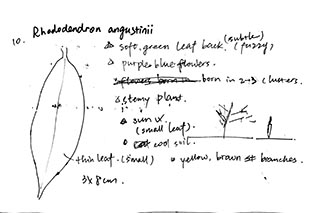 10. Rhododendron angustinii
soft green leaf back. (subtle) (fuzzy)
purple blue flowers.
flowers born in born in 2→3 clusters.
stemy plant.
sun
(small leaf).
cool soil.
thin leaf. (small)
yellow, brown branches.
3x8cm.